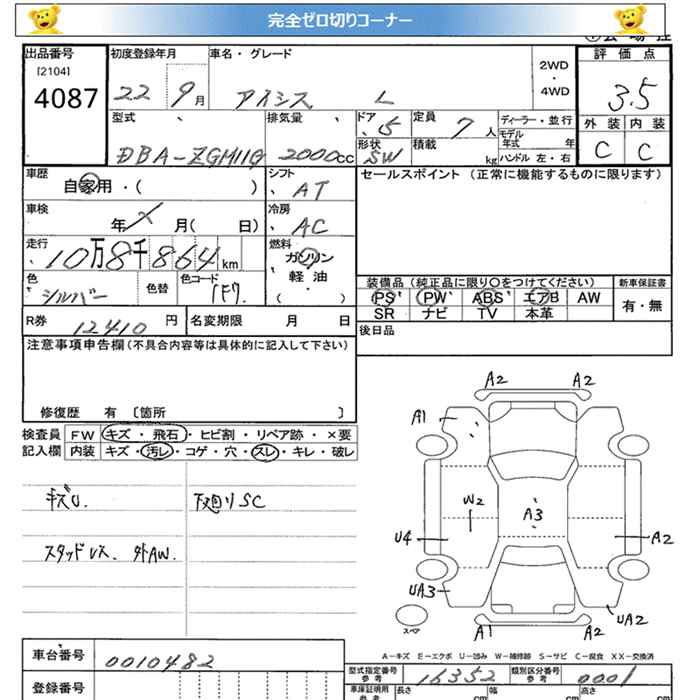 完全ゼロ切りコーナー
出品番号 初度登録年月 車名・グレード 評価点
[2104]
4087 22 9月 アイシス L 2WD・4WD 3.5
型式 排気量 ドア 5 定員 7人 ディーラー・並行 外装 内装
モデル年式 年 C C
DBA-ZGM11G 2000cc 形状 SW 積載 kg ハンドル 左・右
車歴 自家用・( ) シフト AT セールスポイント (正常に機能するものに限ります)
車検 年 月( 日) 冷房 AC
走行 10万8千864km 燃料 ガソリン
軽・油
( )
色 シルバー 色替 色コード 1F7 装備品 (純正品に限り〇をつけてください) 新車保証書
PS PW ABS エアB AW 有・無
SR ナビ TV 本革
R券 12410円 名変期限 月 日 後日品
注意事項申告欄(不具合内容等は具体的に記入して下さい)
修復歴 有 〔箇所 〕
検査員 FW キズ・飛石・ヒビ割・リペア跡・×要
記入欄 内装 キズ・汚レ・コゲ・穴・スレ・キレ・破レ
キズU. 下廻りSC
スタッドレス. 外AW.
A2 A2
A1
W2
A3
U4 A2
UA3 UA2
スペア A1 A2
A-キズ E-エクボ U-凹み W-補修跡 S-サビ C-腐食 XX-交換済
車台番号 0010482
型式指定番号 参考 16352 類別区分番号 参考 0001
登録番号 車庫証明用 参考 長さ cm 幅 cm 高さ cm